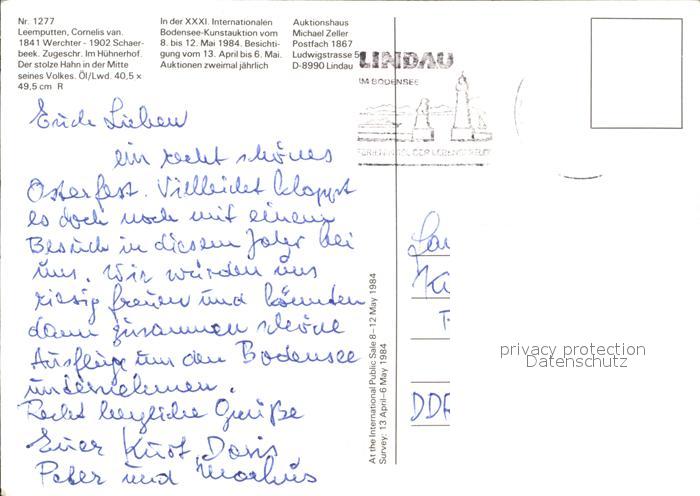 Nr. 1277
Leemputten, Cornelis van.
1841 Werchter - 1902 Schaer-
beek. Zugeschr. Im Hühnerhof.
Der stolze Hahn in der Mitte
seines Volkes. Öl/Lwd. 40,5 x
49,5 cm R
In der XXXI. Internationalen
Bodensee-Kunstauktion vom
8. bis 12. Mai 1984. Besichti-
gung vom 13. April bis 6. Mai.
Auktionen zweimal jährlich
Auktionshaus
Michael Zeller
Postfach 1867
Ludwigstrasse 5
D-8990 Lindau
LINDAU
IM BODENSEE
FERIENINSEL DER LEBENSFREUDE
Euch Lieben
ein recht schönes
Osterfest. Vielleicht kloppt
es doch noch mit einem
Besuch in diesem Jahr bei
uns. Wir würden uns
riesig freuen und könnten
dann zusammen schöne
Ausflüge um den Bodensee
unternehmen.
Recht herzliche Grüße
Euer Kurt, Doris
Peter und Markus
At the International Public Sale 8–12 May 1984
Survey: 13 April–6 May 1984
DDR
privacy protection
Datenschutz